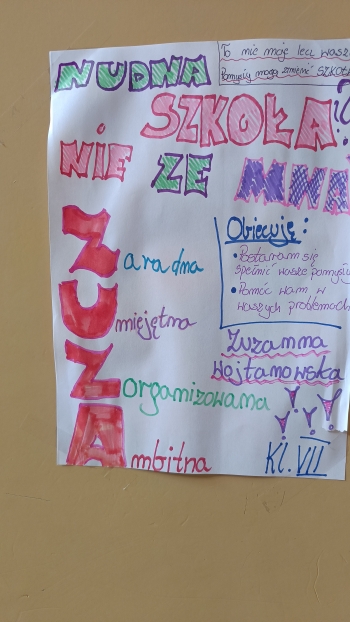 NUDNA
To nie moje lecz wasz
Pomysły mogą zmienić SZKOŁ
SZKOŁA?
NIE ZE MNĄ
Obiecuję:
• Postaram się
spełnić wasze pomysły
• Pomóc wam w
waszych problemach
ZUZA
aradna
miejętna
organizowana
mbitna
Zuzanna
Wojtanowska
Kl. VII